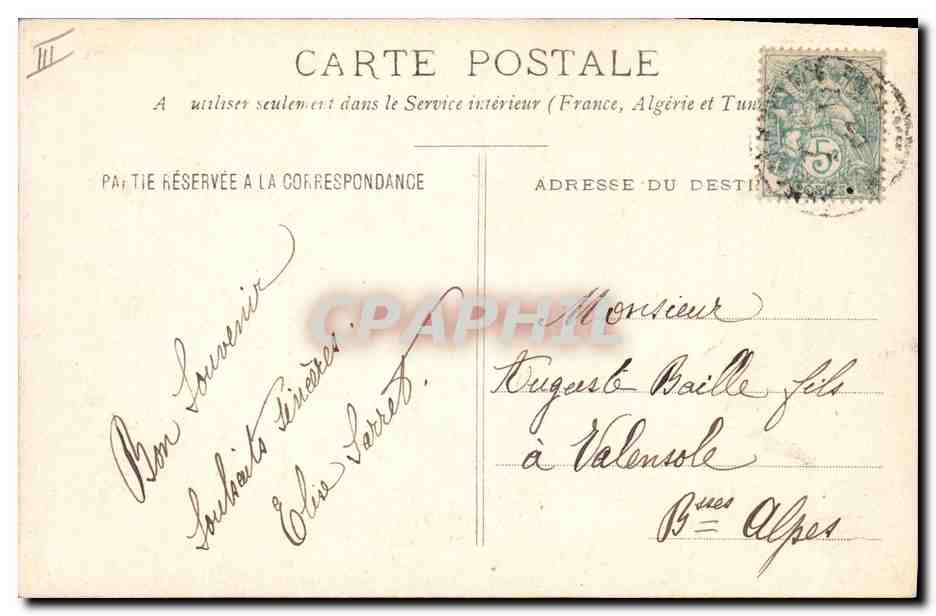 III
CARTE POSTALE
A utiliser seulement dans le Service intérieur (France, Algérie et Tun
PARTIE RÉSERVÉE A LA CORRESPONDANCE
ADRESSE DU DESTI
5c
POSTES
Bon Souvenir
Souhaits sincères.
Elise Sarret.
Monsieur
Auguste Baille fils
à Valensole
Bsses Alpes
CPAPHIL